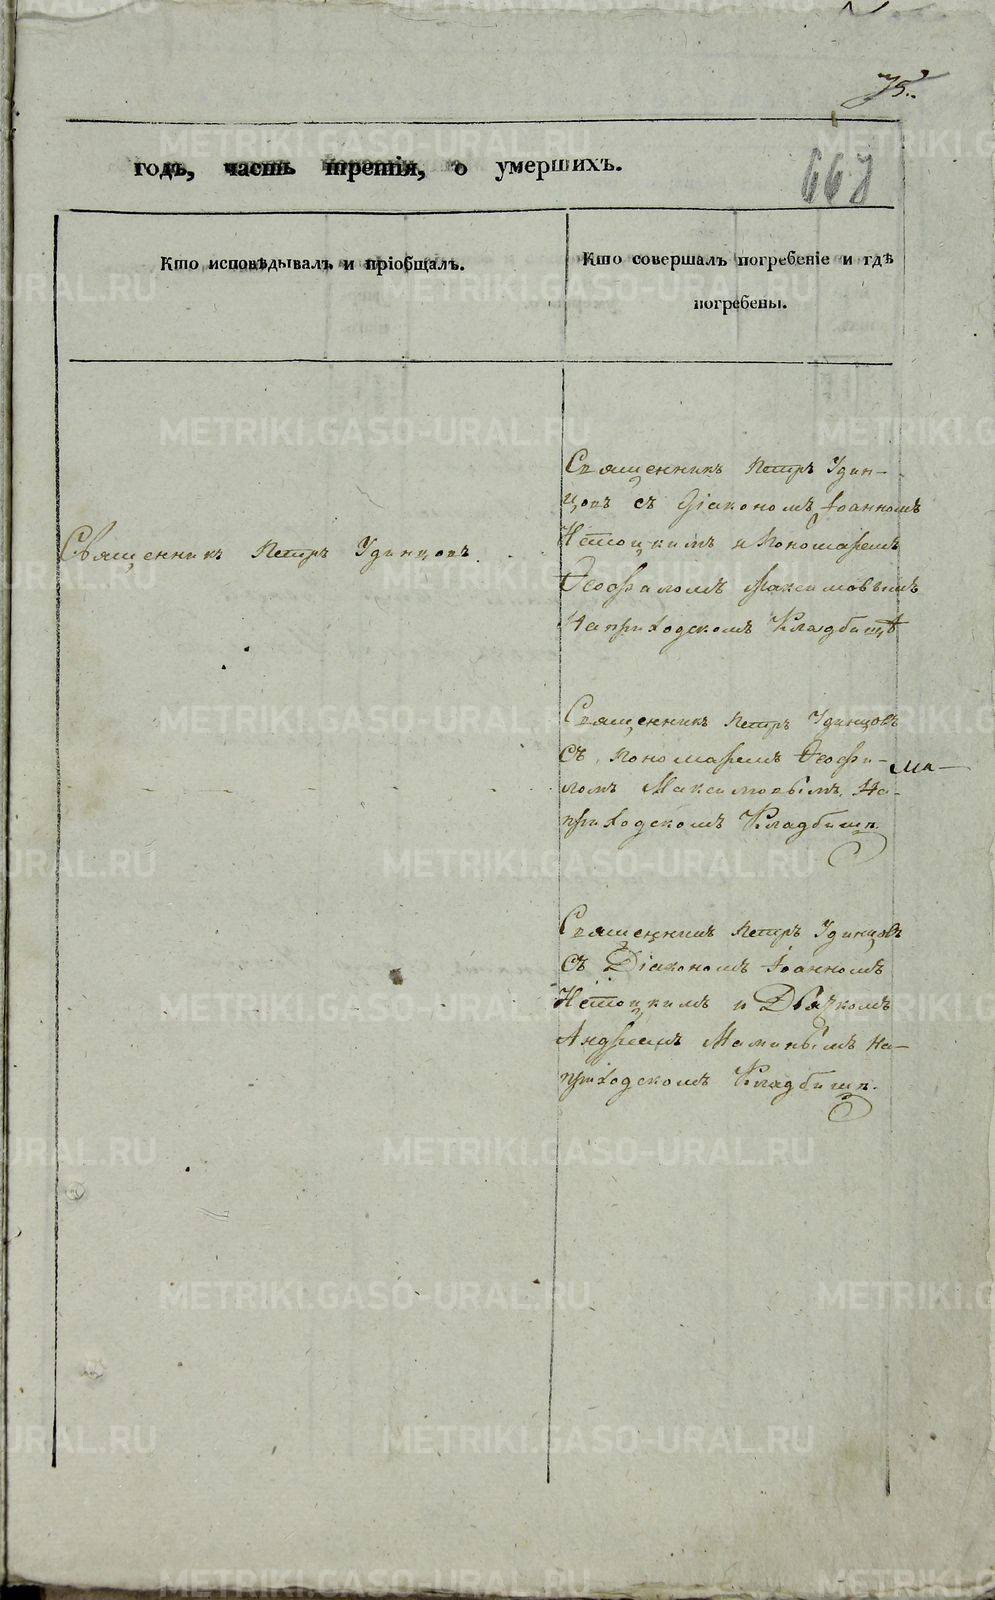 75.
годъ, часть третія, о умершихъ.
667
Кто исповѣдывалъ и пріобщалъ.
Кто совершалъ погребеніе и гдѣ
погребены.
Священникъ Петръ Удинцовъ.
Священникъ Петръ Удин-
цовъ съ Діакономъ Іоанномъ
Истоцкимъ и Пономаремъ
Ѳеофиломъ Максимовымъ
На приходскомъ Кладбищѣ
Священникъ Петръ Удинцовъ
Съ Пономаремъ Ѳеофи-
ломъ Максимовымъ На-
приходскомъ Кладбищѣ.
Ма-
Священникъ Петръ Удинцовъ
Съ Діакономъ Іоанномъ
Истоцкимъ и Дьячкомъ
Андреемъ Маминымъ на-
приходскомъ Кладбищѣ.
METRIKI.GASO-URAL.RU